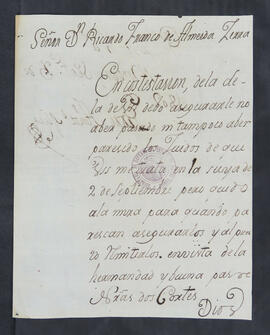 Señor Dn. Ricardo Franco de Almeida Serra
En contestasion, dela de
la de VS. debo asegurarle no
aber pasado ni tampoco aber
paresido los Yndios de que
VS. me trata en la suya de
2 de Septiembre pero quedo
ala mira para quando pa
rescan asegurarlos y al pun
to rimitirlos. en vista de la
hermandad y buena pas de
Nrãs dos Cortes
Dios